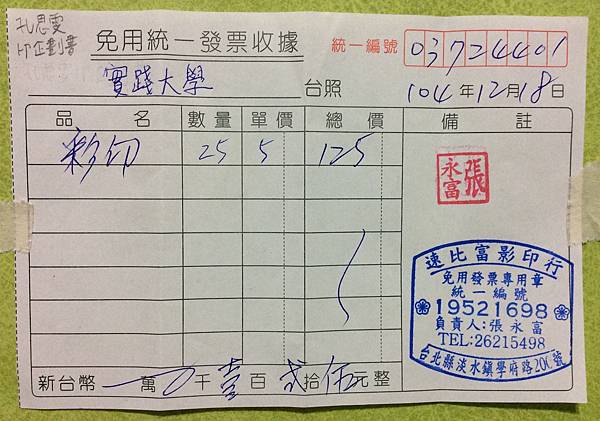 孔思雯
印企劃書
免用統一發票收據
統一編號 03724401
實踐大學 台照
104年12月18日
品名 數量 單價 總價 備註
彩印 25 5 125
張永富
速比富影印行
免用發票專用章
統一編號
19521698
負責人:張永富
TEL:26215498
台北縣淡水鎮學府路200號
新台幣 萬 千壹百貳拾伍元整